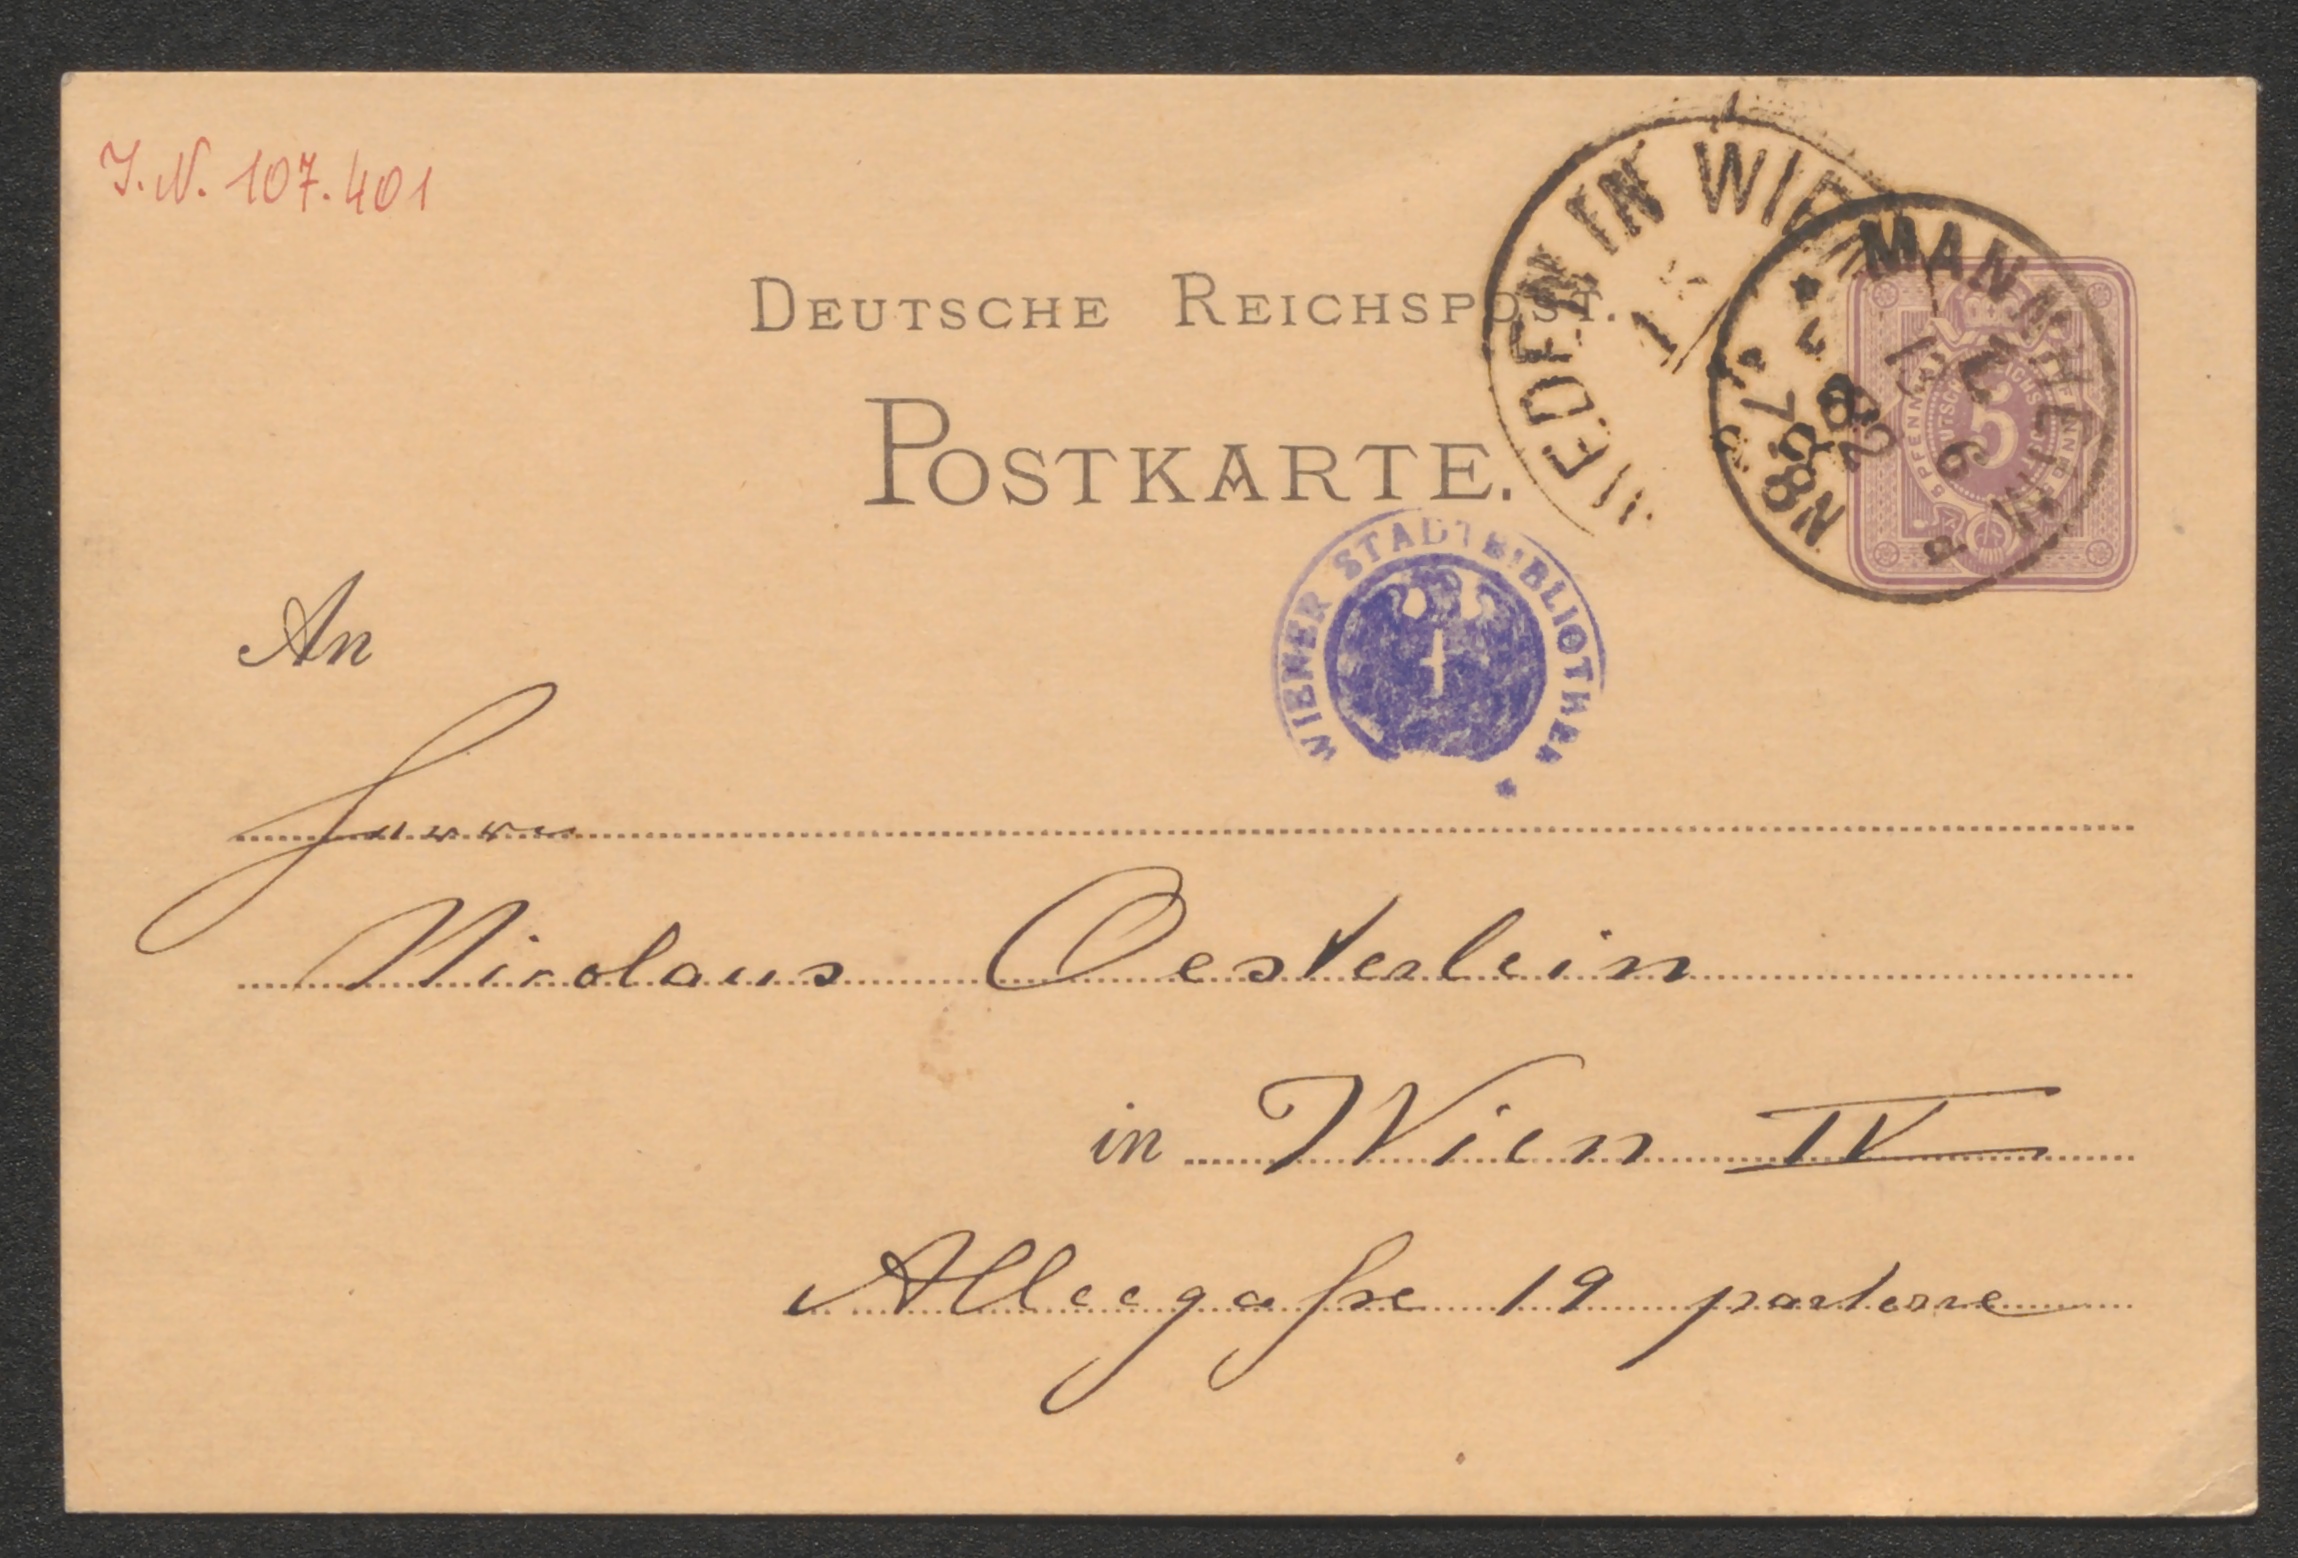 J.N. 107.401
DEUTSCHE REICHSPOST.
POSTKARTE.
WIEDEN IN WIEN
MANNHEIM
82
5
WIENER STADTBIBLIOTHEK
An
Herrn
Nicolaus Oesterlein
in Wien IV
Alleegaße 19 parterre